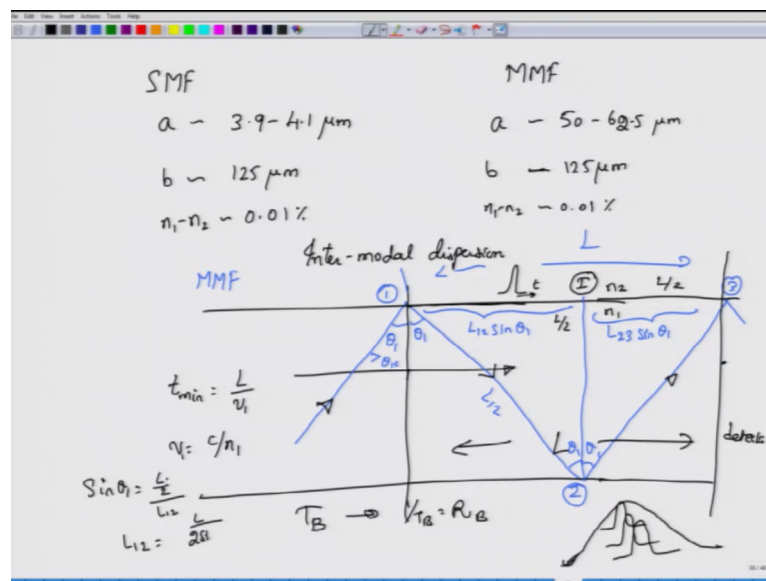 File Edit View Insert Actions Tools Help
SMF
a ~ 3.9-4.1 μm
b ~ 125 μm
n₁-n₂ ~ 0.01%
MMF
a ~ 50-62.5 μm
b ~ 125 μm
n₁-n₂ ~ 0.01%
Inter-modal dispersion
L
MMF
①
t
Ⓘ
n₂
L/2
③
n₁
θ₁ θ₁
L₁₂ sin θ₁
L/2
L₂₃ sin θ₁
>θ₁c
t_min = L/v₁
L₁₂
v₁ = c/n₁
L
θ₁ θ₁
Sinθ₁ = L/2 / L₁₂
②
T_B → 1/T_B = R_B
L₁₂ =